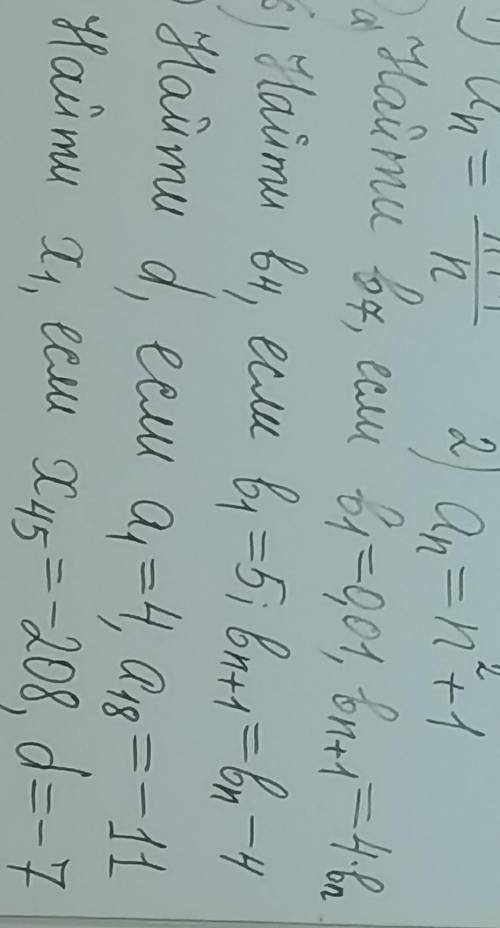 1) aₙ = /n 2) aₙ = n² + 1
а) Найти b₇, если b₁ = 0,01, bₙ₊₁ = 4·bₙ
б) Найти b₄, если b₁ = 5; bₙ₊₁ = bₙ − 4
) Найти d, если a₁ = 4, a₁₈ = −11
Найти x₁, если x₄₅ = −208, d = −7